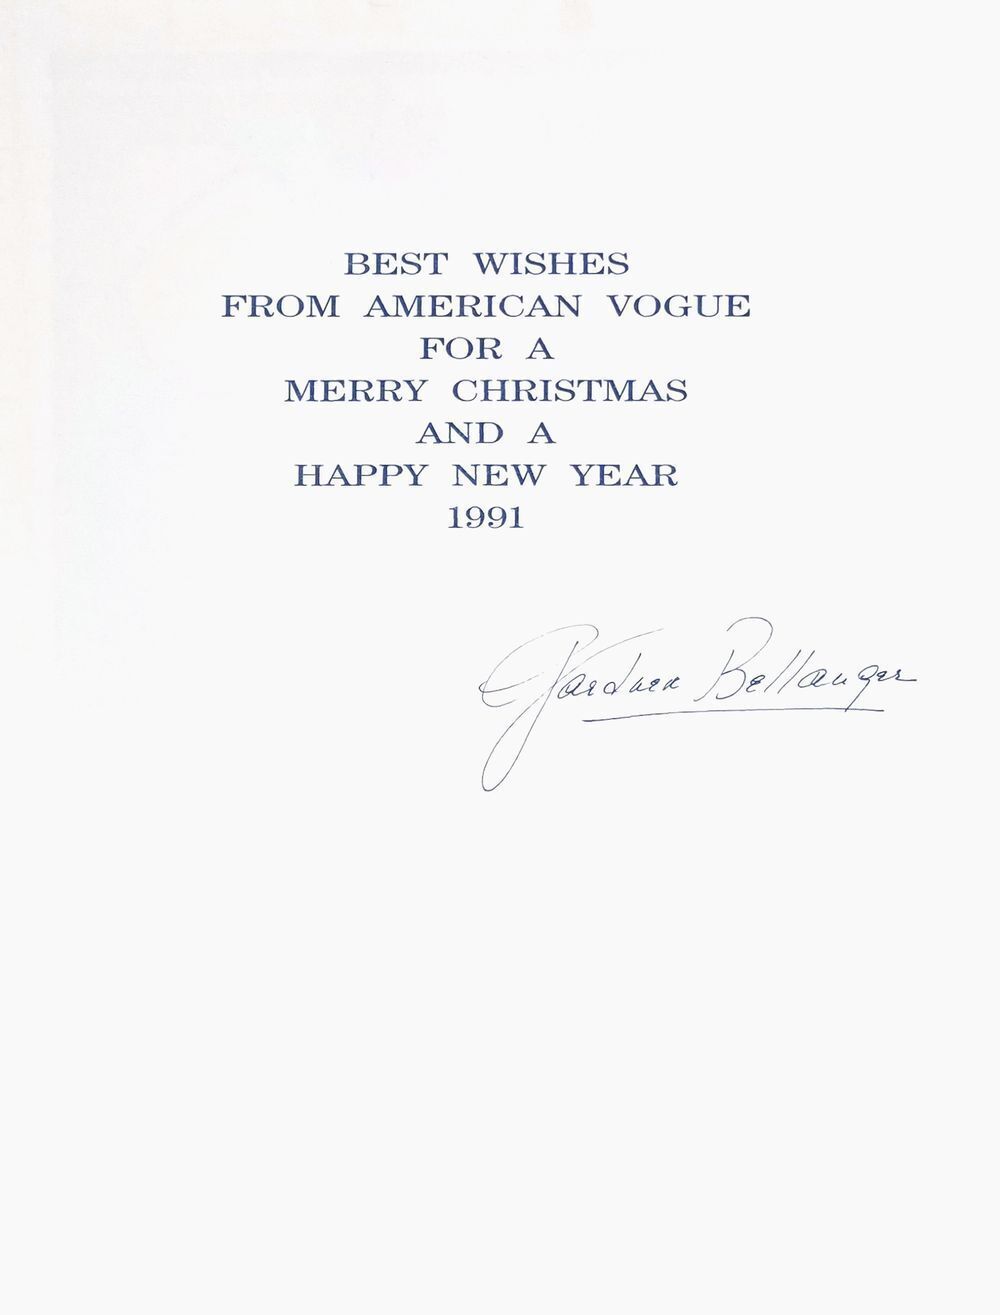 BEST WISHES
FROM AMERICAN VOGUE
FOR A
MERRY CHRISTMAS
AND A
HAPPY NEW YEAR
1991
Gardner Bellanger